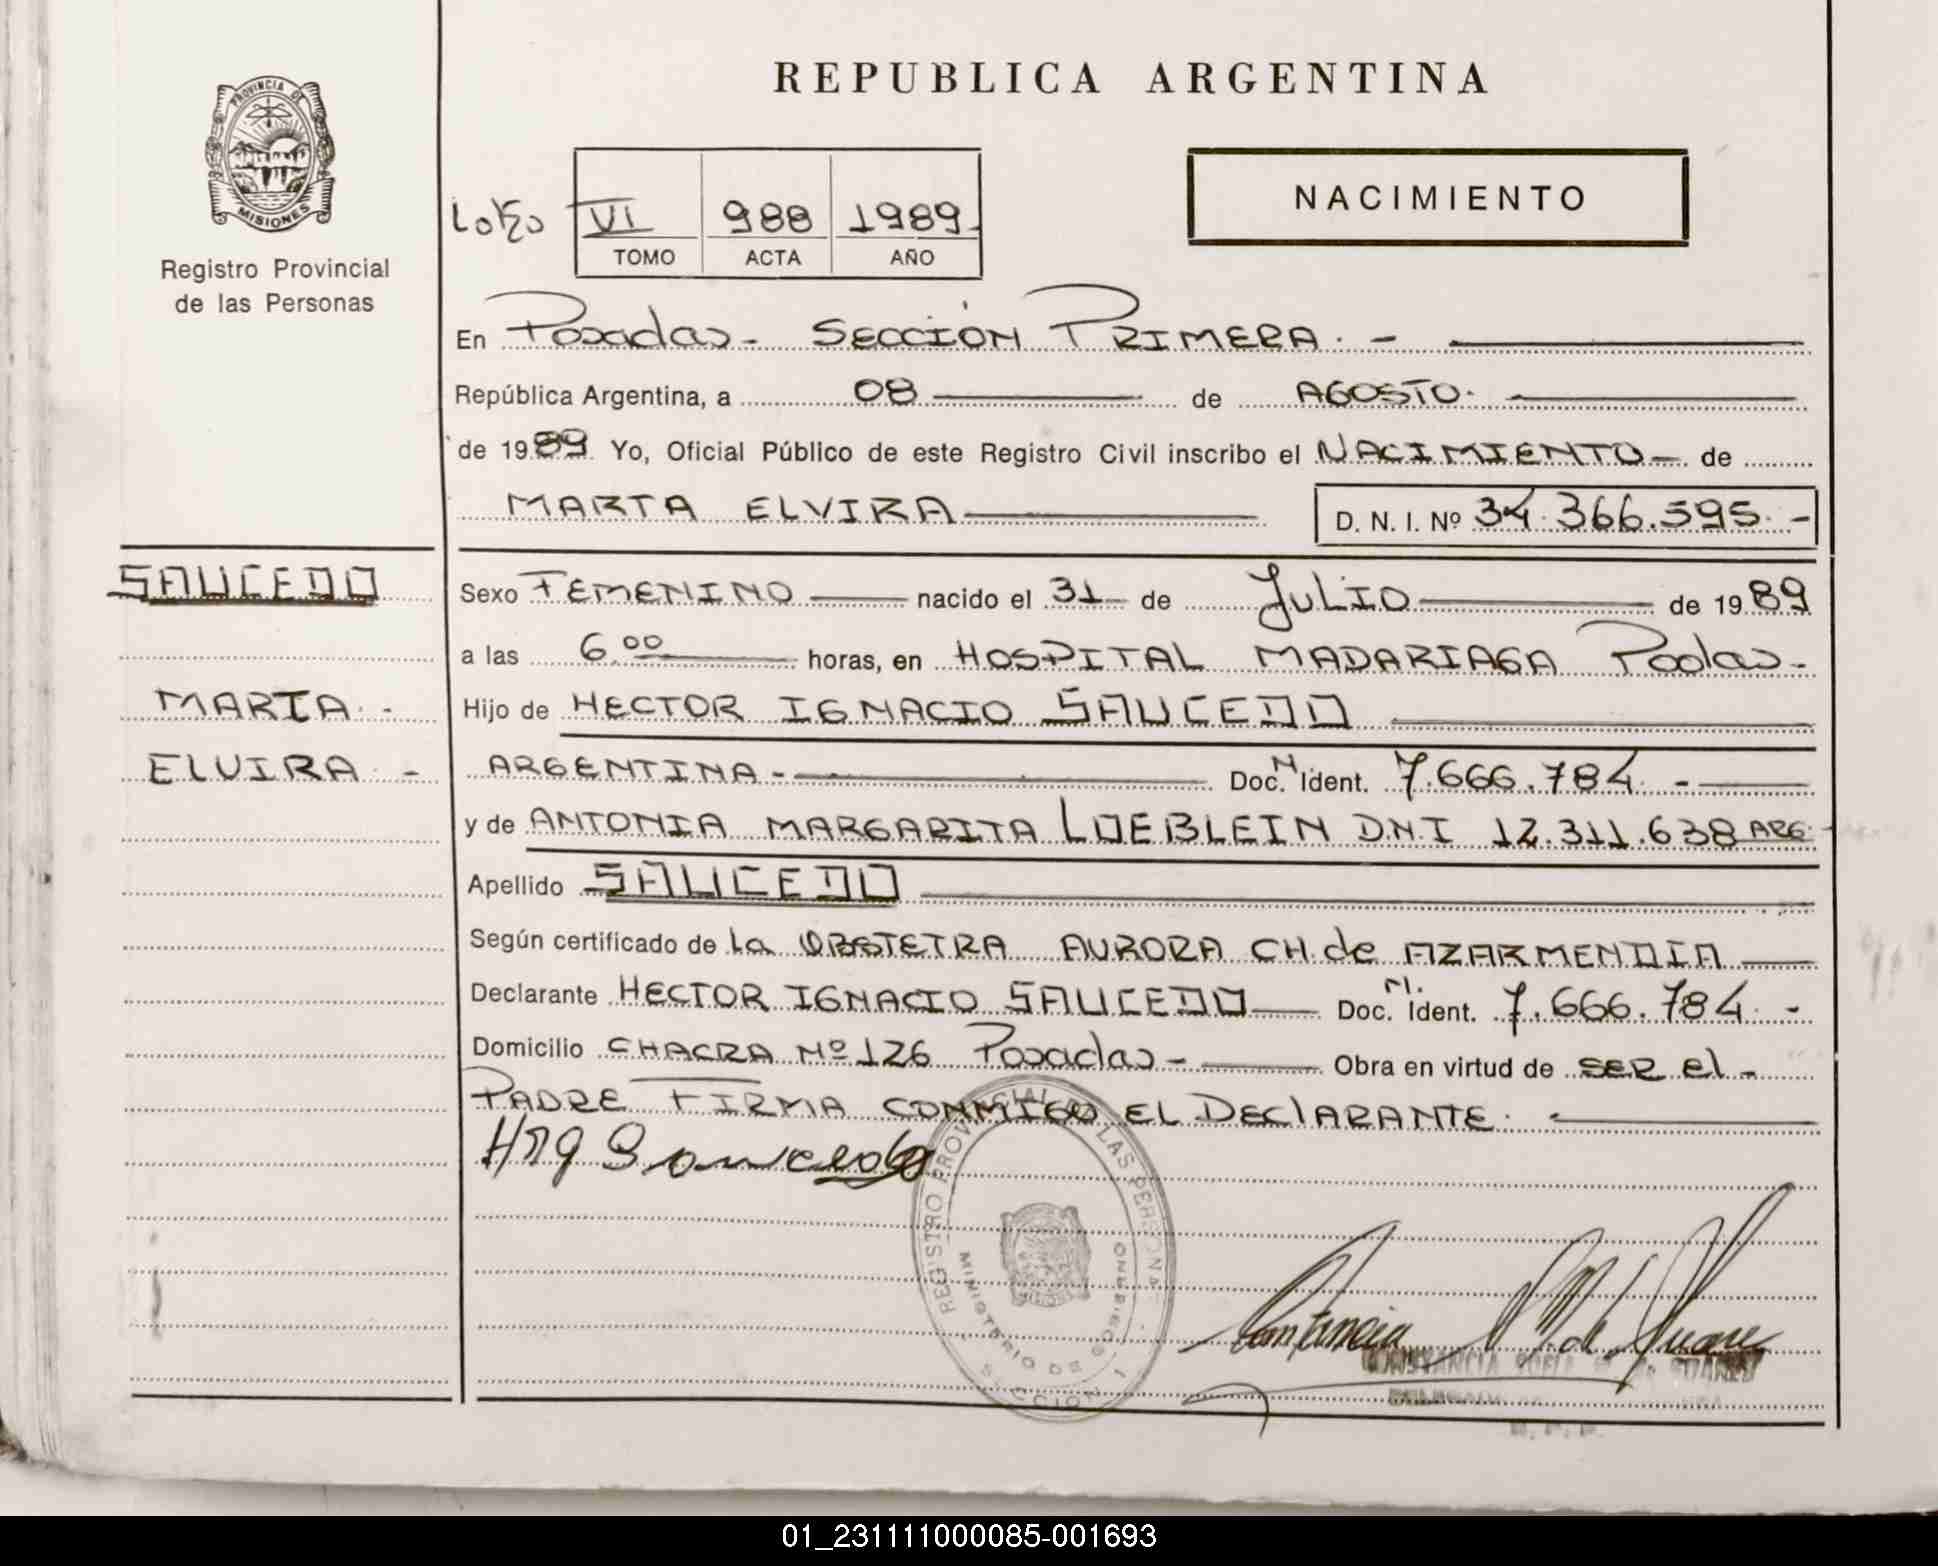 REPUBLICA ARGENTINA
PROVINCIA DE
MISIONES
Registro Provincial
de las Personas
NACIMIENTO
VI 988 1989
TOMO ACTA AÑO
En Posadas - SECCIÓN PRIMERA. -
República Argentina, a 08 de AGOSTO.
de 1989 Yo, Oficial Público de este Registro Civil inscribo el NACIMIENTO de
MARTA ELVIRA D. N. I. Nº 34.366.595. -
SAUCEDO
MARTA. -
ELVIRA -
Sexo FEMENINO nacido el 31 de JULIO de 1989
a las 6.00 horas, en HOSPITAL MADARIAGA Podas.
Hijo de HECTOR IGNACIO SAUCEDO
ARGENTINA - Doc. M. Ident. 7.666.784. -
y de ANTONIA MARGARITA LOEBLEIN D.N.I 12.311.638 ARG.
Apellido SAUCEDO
Según certificado de La OBSTETRA AURORA CH. de AZARMENDIA
Declarante HECTOR IGNACIO SAUCEDO Doc. M. Ident. 7.666.784. -
Domicilio CHACRA Nº 126 Posadas - Obra en virtud de SER el -
PADRE FIRMA CONMIGO EL DECLARANTE.
REGISTRO PROVINCIAL DE LAS PERSONAS
MINISTERIO DE GOBIERNO
SECCION 1
01_231111000085-001693